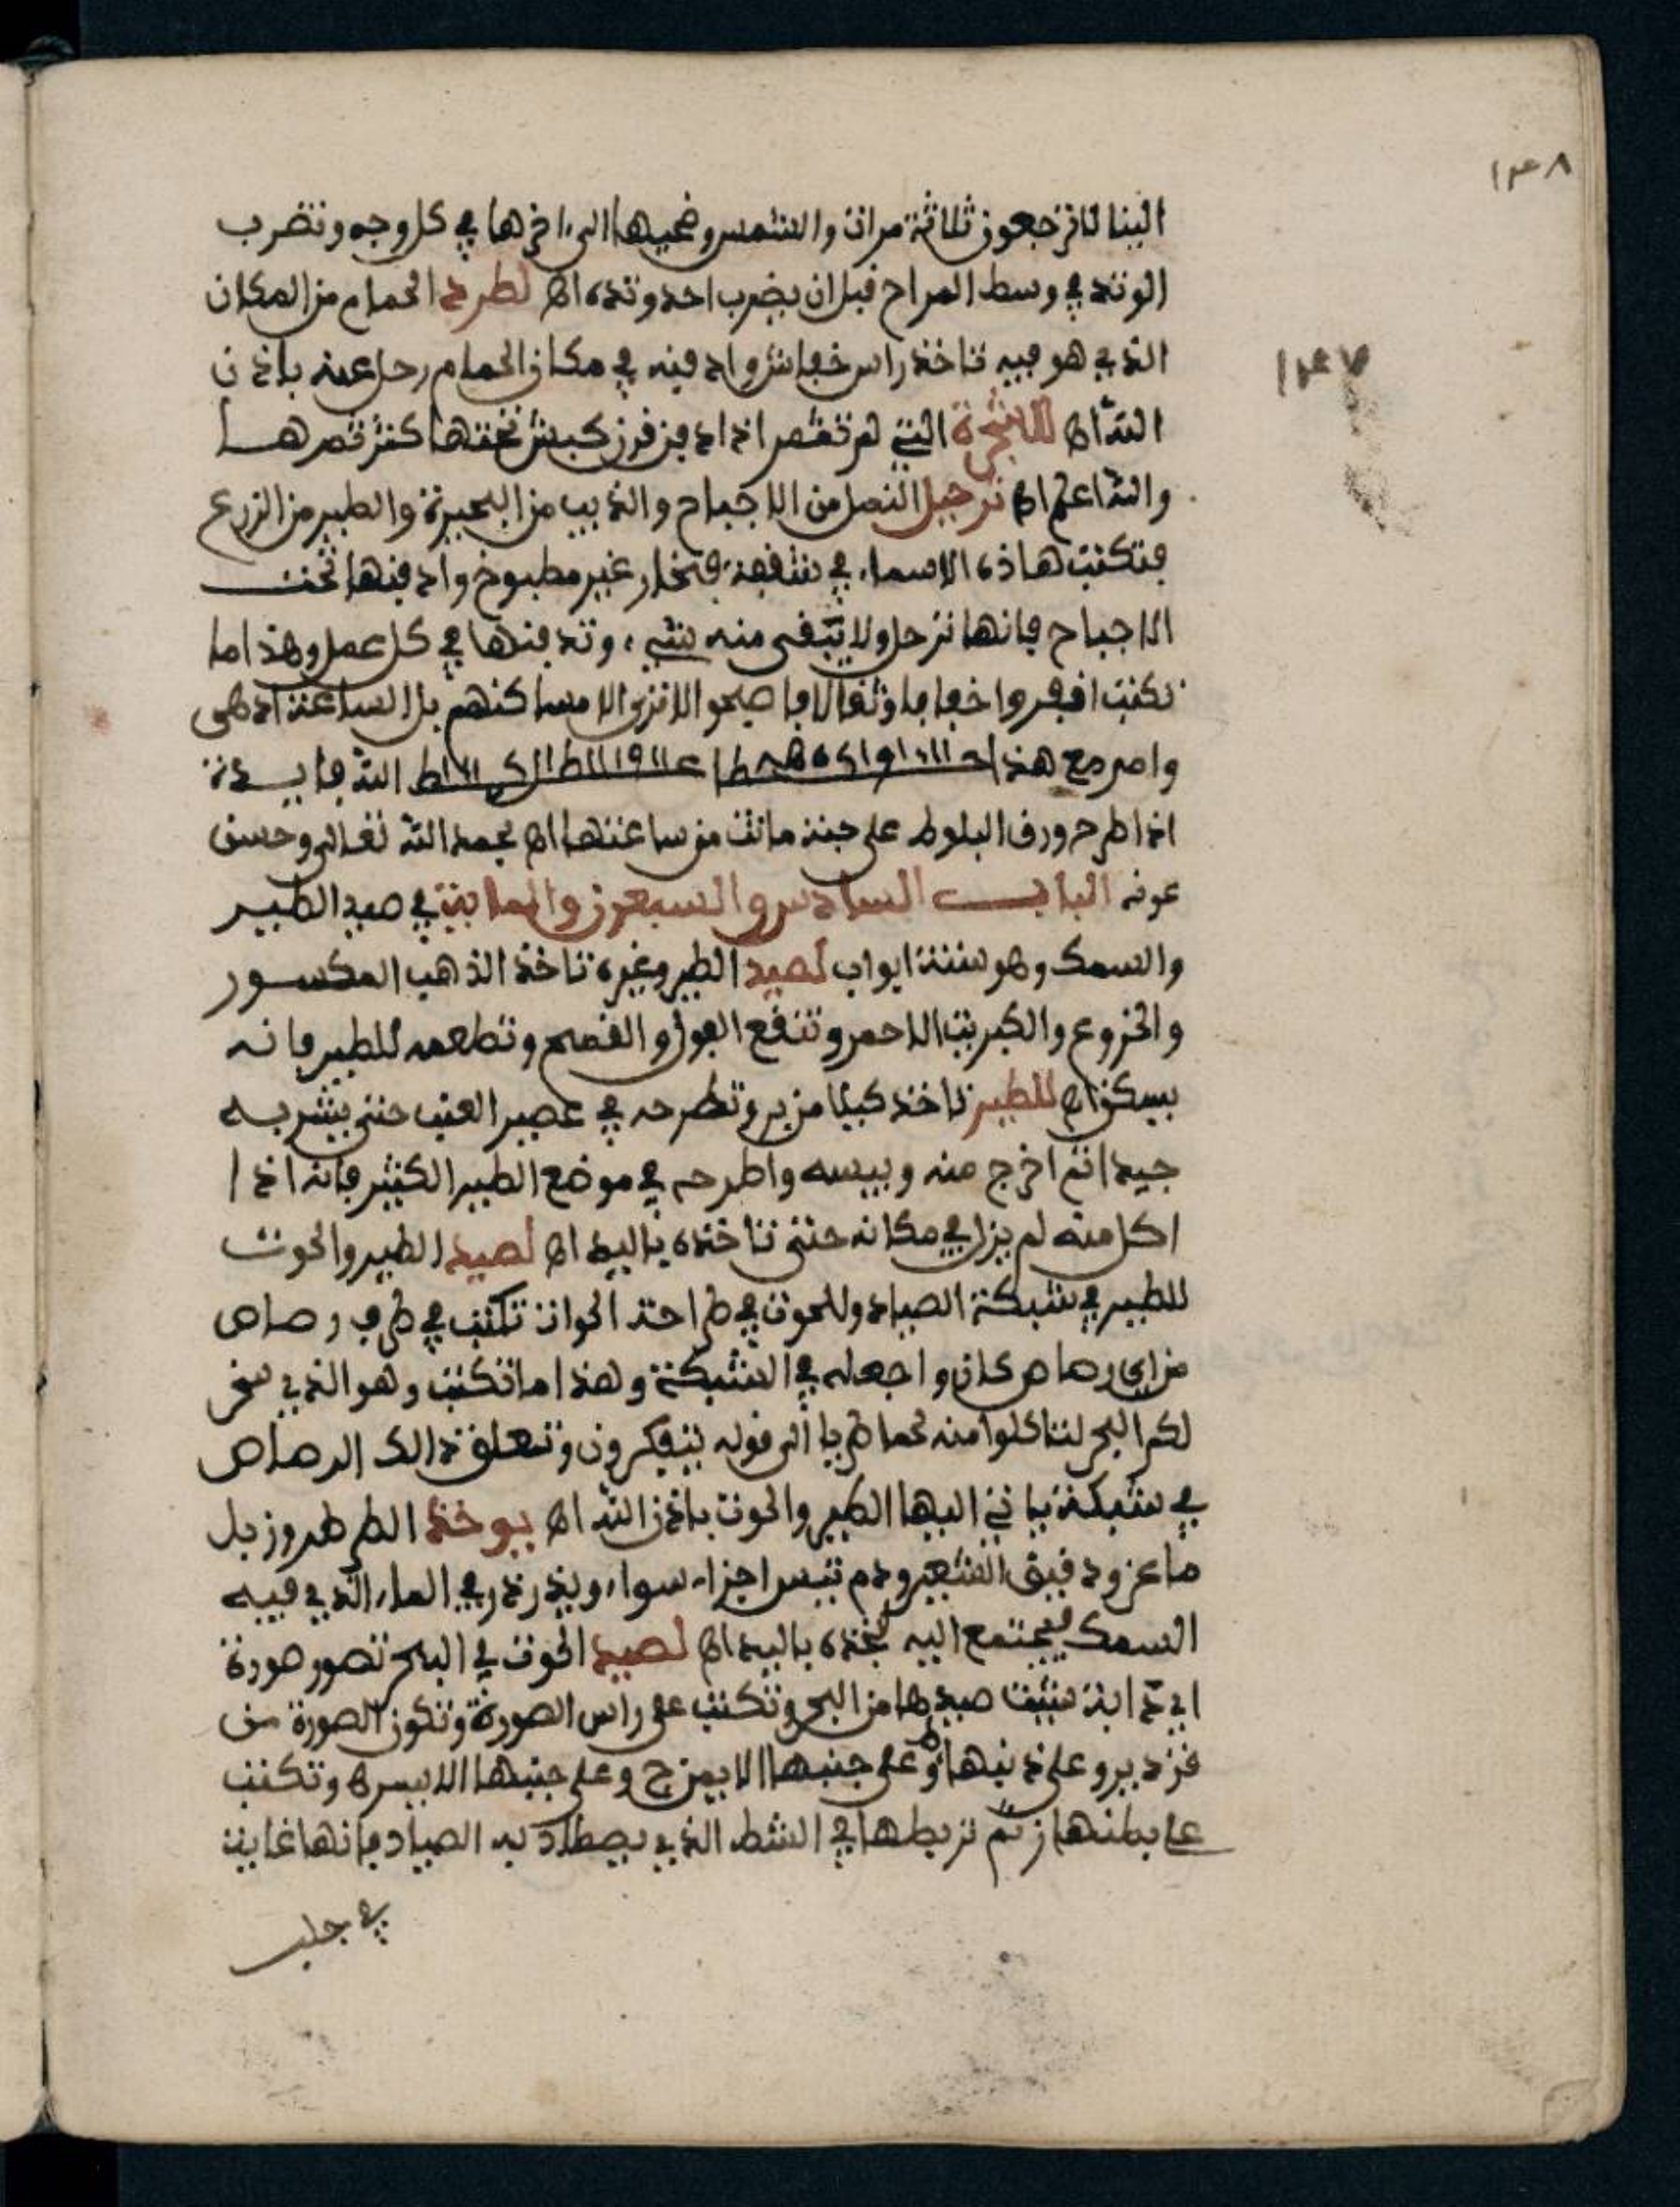 ١٤٨
الينا لا ترجعون ثلاثة مرات والشمس وضحيها الى اخرها في كل وجه وتضرب
الوتد في وسط المراح قبل ان يضرب احد وتده اھ لطرد الحمام من المكان
الذي هو فيه تاخذ راس خفاش وادفنه في مكان الحمام رحل عنه باذن
١٤٧
الله اھ للشجرة التي لم تثمر اذا دفن قرن كبش تحتها كثر ثمرها
والله اعلم اھ ترحيل النمل من الاجباح والذيب من البحيرة والطير من الزرع
فتكتب هاذه الاسماء في شقفة فخار غير مطبوخ وادفنها تحت
الاجباح فانها ترحل ولا يبقى منه شيء وتدفنها في كل عمل وهذا ما
تكتب انفروا خفافا وثقالا فاصبحوا لا ترى الا مساكنهم بل الساعة ادهى
وامر مع هذا الله فايدة
اذا طرح ورق البلوط على حية ماتت من ساعتها اھ بحمد الله تعالى وحسن
عونه الباب السادس والسبعون والماية في صيد الطير
والسمك وهو ستة ابواب لصيد الطير وغيره تاخذ الذهب المكسور
والخروع والكبريت الاحمر وتنقع الفول والقمح وتطعمه للطير فانه
يسكر اھ للطير تاخذ كيلا من بر وتطرحه في عصير العنب حتى يشربه
جيدا ثم اخرج منه ويبسه واطرحه في موضع الطير الكثير فانه اذا
اكل منه لم يزل في مكانه حتى تاخذه باليد اھ لصيد الطير والحوت
للطير في شبكة الصياد وللحوت في طراحة الحوات تكتب في طرف رصاص
من اي رصاص كان واجعله في الشبكة وهذا ما تكتب وهو الذي سخر
لكم البحر لتاكلوا منه لحما طريا الى قوله يتفكرون وتعلق ذالك الرصاص
في شبكة ياتي اليها الطير والحوت باذن الله اھ يوخذ الطرطر وزبل
ماعز ودقيق الشعير ودم تيس اجزاء سواء ويذرذر في الماء الذي فيه
السمك فيجتمع اليه تخذه باليد اھ لصيد الحوت في البحر تصور صورة
اي دابة شيت صيدها من البحر وتكتب على راس الصورة وتكون الصورة من
قزدير وعلى ذنبها و وعلى جنبها الايمن ج وعلى جنبها الايسر ھ وتكتب
على بطنها ز ثم تربطها في الشط الذي يصطاد به الصياد فانها غاية
في جلب